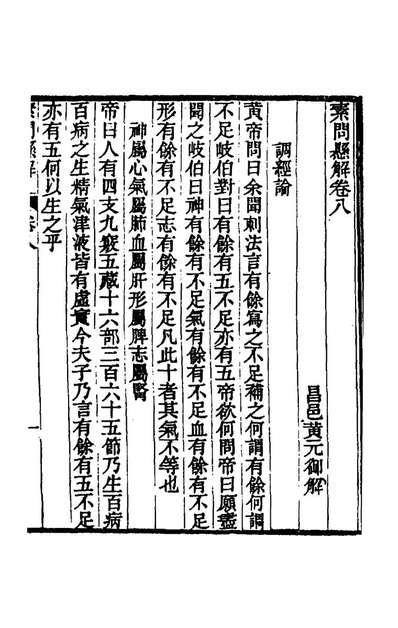 素問懸解卷八
昌邑黃元御解
調經論
黃帝問曰余聞刺法言有餘寫之不足補之何謂有餘何謂
不足岐伯對曰有餘有五不足亦有五帝欲何問帝曰願盡
聞之岐伯曰神有餘有不足氣有餘有不足血有餘有不足
形有餘有不足志有餘有不足凡此十者其氣不等也
神屬心氣屬肺血屬肝形屬脾志屬腎
帝曰人有四支九竅五藏十六部三百六十五節乃生百病
百病之生精氣津液皆有虛實今夫子乃言有餘有五不足
亦有五何以生之乎
素問懸解 卷八 一